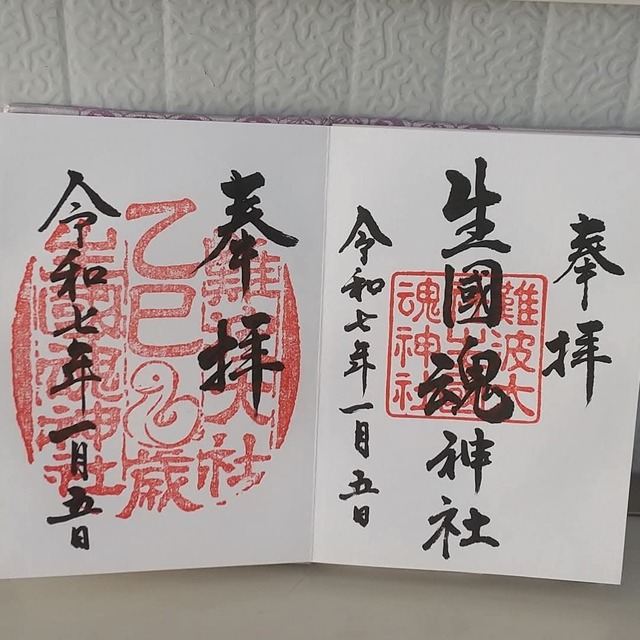 奉拝
生國魂神社
難波大
魂神社
令和七年一月五日
奉拝
難波大社
乙巳歳
生國魂神社
令和七年一月五日